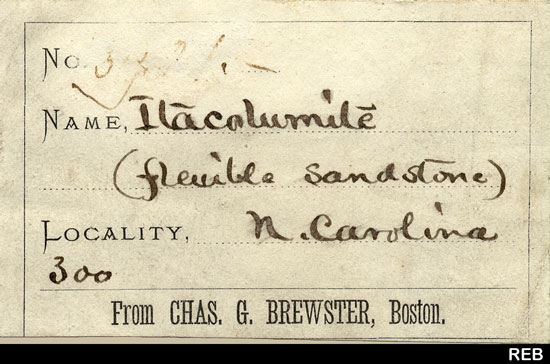 No.
NAME, Itacolumitē
(flexible sandstone)
LOCALITY, N. Carolina
300
From CHAS. G. BREWSTER, Boston.
REB